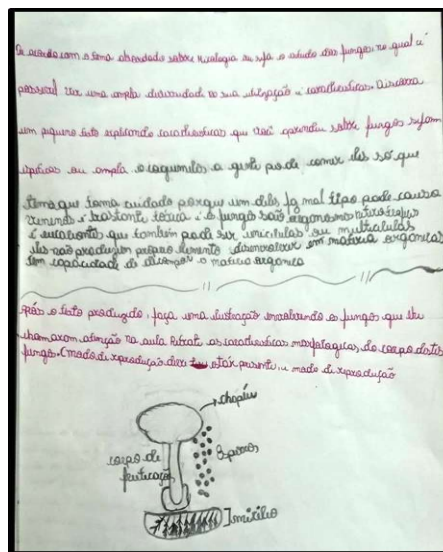 De acordo com o tema abordado sobre micologia ou seja o estudo dos fungos no qual é
possível ver uma ampla diversidade na sua utilização e características. Discorra
um pequeno texto explicando características que você aprendeu sobre fungos sejam
específicas ou ampla o cogumelos a gente pode comer eles só que
tema que toma cuidado porque um deles faz mal tipo pode causa
venenos é bastante tóxica e o fungos são organismos heterotróficos
é eucariontes que também pode ser unicelulas ou multicelulas
eles não produzem próprio alimento desenvolver em matéria orgânicas
tem capacidade de decompor o matéria orgânica
Após o texto produzido, faça uma ilustração envolvendo os fungos que lhe
chamaram atenção na aula Retrate as características morfologicas, do corpo destes
fungos. (modo de reprodução deve estar presente, u modo de reprodução
chapéu
corpo de
frutificação
Esporos
micélio